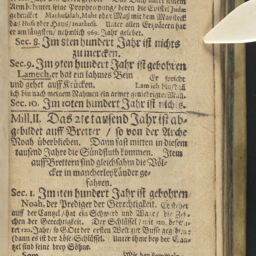 gebencket Machusalah, Maht oder Maß mit dem Maasstock
als Rost oder Haus/marhuß. Unter allen Erzvätern hat
er am längsten/ nehmlich 969. Jahr gelebet.
Sec. 8. Im 8ten hundert Jahr ist nichts
zu mercken.
Sec. 9. Im 9ten hundert Jahr ist gebohren
Lamech, er hat ein lahmes Bein Er spricht
und gehet auff Krücken. Lam ich bin/daß
ich bin nach meinem Nahmen ein armer gemercklicher Mann.
Sec. 10. Im 10ten hundert Jahr ist nichts.
Mill. II. Das 2te tausend Jahr ist ab-
gebildet auff Bretter / so von der Arche
Noah überblieben. Dann fast mitten in diesem
tausend Jahre die Sündfluth kommen. Item
auff Brettern sind gleichsahm die Völ-
cker in mancherley Länder ge-
fahren.
Sec. 1. Im 1ten hundert Jahr ist gebohren
Noah, der Prediger der Gerechtigkeit. Er stehet
auff der Cantzel / hat ein Schwerd und Waa / die Zei-
chen der Gerechtigkeit. Der Schlüssel / mit
tet 120. Jahr / so GOtt der ersten Welt zur Busse gegeben/
(dann es ist der 20te Schlüssel. Unter ihm bey der Can-
zel sind seine drey Söhne.